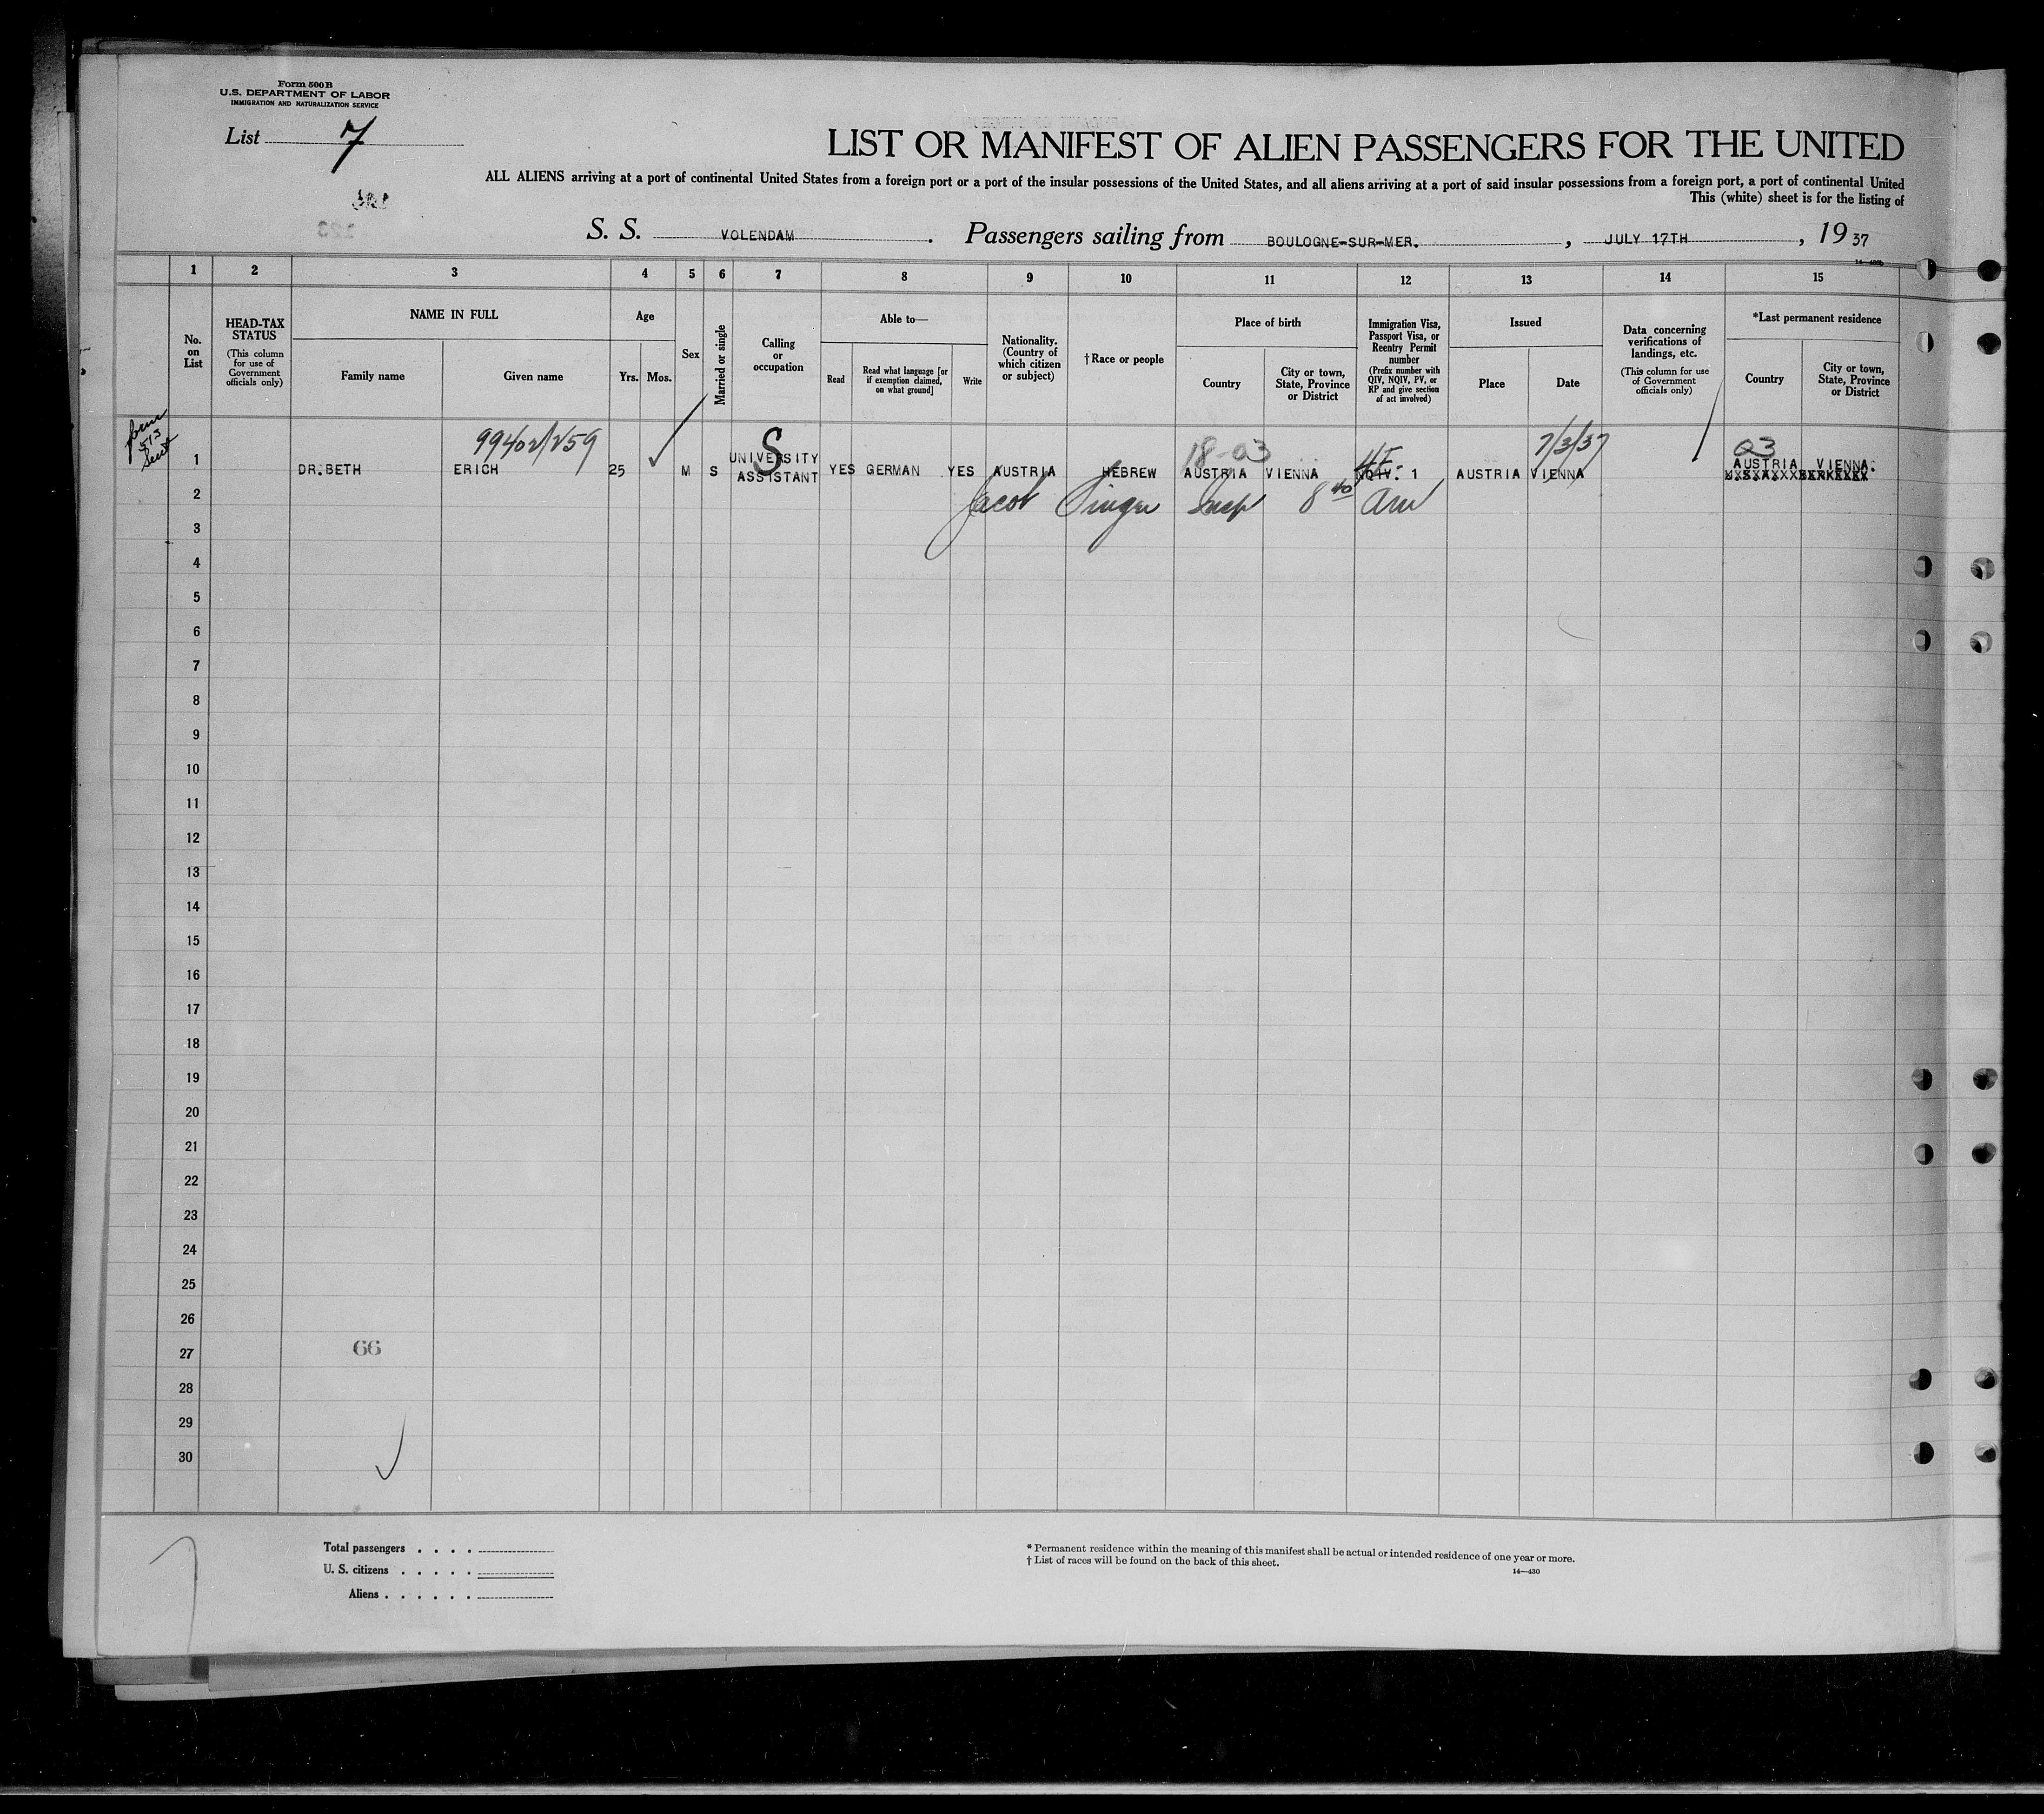 Form 500 B
U.S. DEPARTMENT OF LABOR
IMMIGRATION AND NATURALIZATION SERVICE
List 7
LIST OR MANIFEST OF ALIEN PASSENGERS FOR THE UNITED
ALL ALIENS arriving at a port of continental United States from a foreign port or a port of the insular possessions of the United States, and all aliens arriving at a port of said insular possessions from a foreign port, a port of continental United
This (white) sheet is for the listing of
S. S. VOLENDAM. Passengers sailing from BOULOGNE-SUR-MER., JULY 17TH, 1937
14—430b
1 2 3 4 5 6 7 8 9 10 11 12 13 14 15
No. on List
HEAD-TAX STATUS
(This column for use of Government officials only)
NAME IN FULL
Family name
Given name
Age
Yrs.
Mos.
Sex
Married or single
Calling or occupation
Able to—
Read
Read what language [or if exemption claimed, on what ground]
Write
Nationality. (Country of which citizen or subject)
†Race or people
Place of birth
Country
City or town, State, Province or District
Immigration Visa, Passport Visa, or Reentry Permit number
(Prefix number with QIV, NQIV, PV, or RP and give section of act involved)
Issued
Place
Date
Data concerning verifications of landings, etc.
(This column for use of Government officials only)
*Last permanent residence
Country
City or town, State, Province or District
form 513 sent
99402/1259
S
18-03
4E
7/3/37
03
1 DR.BETH ERICH 25 M S UNIVERSITY ASSISTANT YES GERMAN YES AUSTRIA HEBREW AUSTRIA VIENNA NQIV. 1 AUSTRIA VIENNA AUSTRIA VIENNA.
Jacob Singer Insp 8 40 am
2
3
4
5
6
7
8
9
10
11
12
13
14
15
16
17
18
19
20
21
22
23
24
25
26
27
66
28
29
30
Total passengers . . . .
U. S. citizens . . . . .
Aliens . . . . . .
* Permanent residence within the meaning of this manifest shall be actual or intended residence of one year or more.
† List of races will be found on the back of this sheet.
14—430